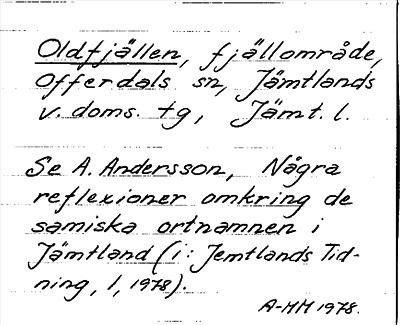 Oldfjällen, fjällområde,
Offerdals sn, Jämtlands
v. doms. tg, Jämt. l.
Se A. Andersson, Några
reflexioner omkring de
samiska ortnamnen i
Jämtland (i: Jemtlands Tid-
ning, 1, 1978).
A-MM 1978.